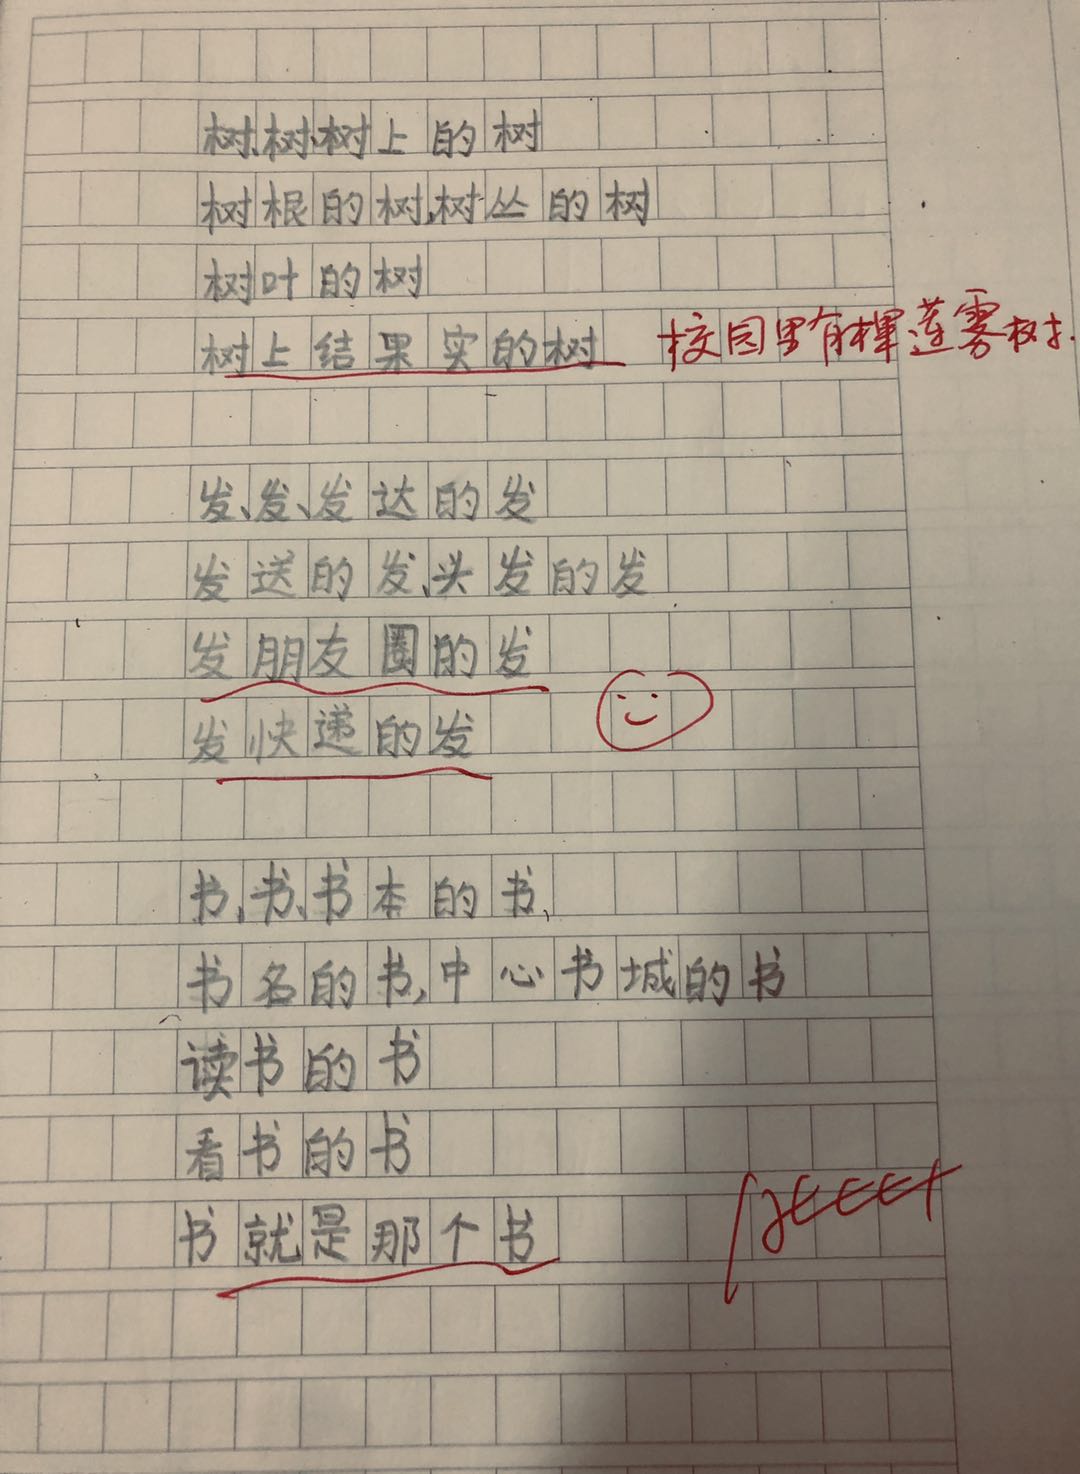 树、树、树上的树
树根的树,树丛的树
树叶的树
树上结果实的树 校园里有棵莲雾树.
发、发、发达的发
发送的发、头发的发
发朋友圈的发
发快递的发
书、书、书本的书、
书名的书,中心书城的书
读书的书
看书的书
书就是那个书